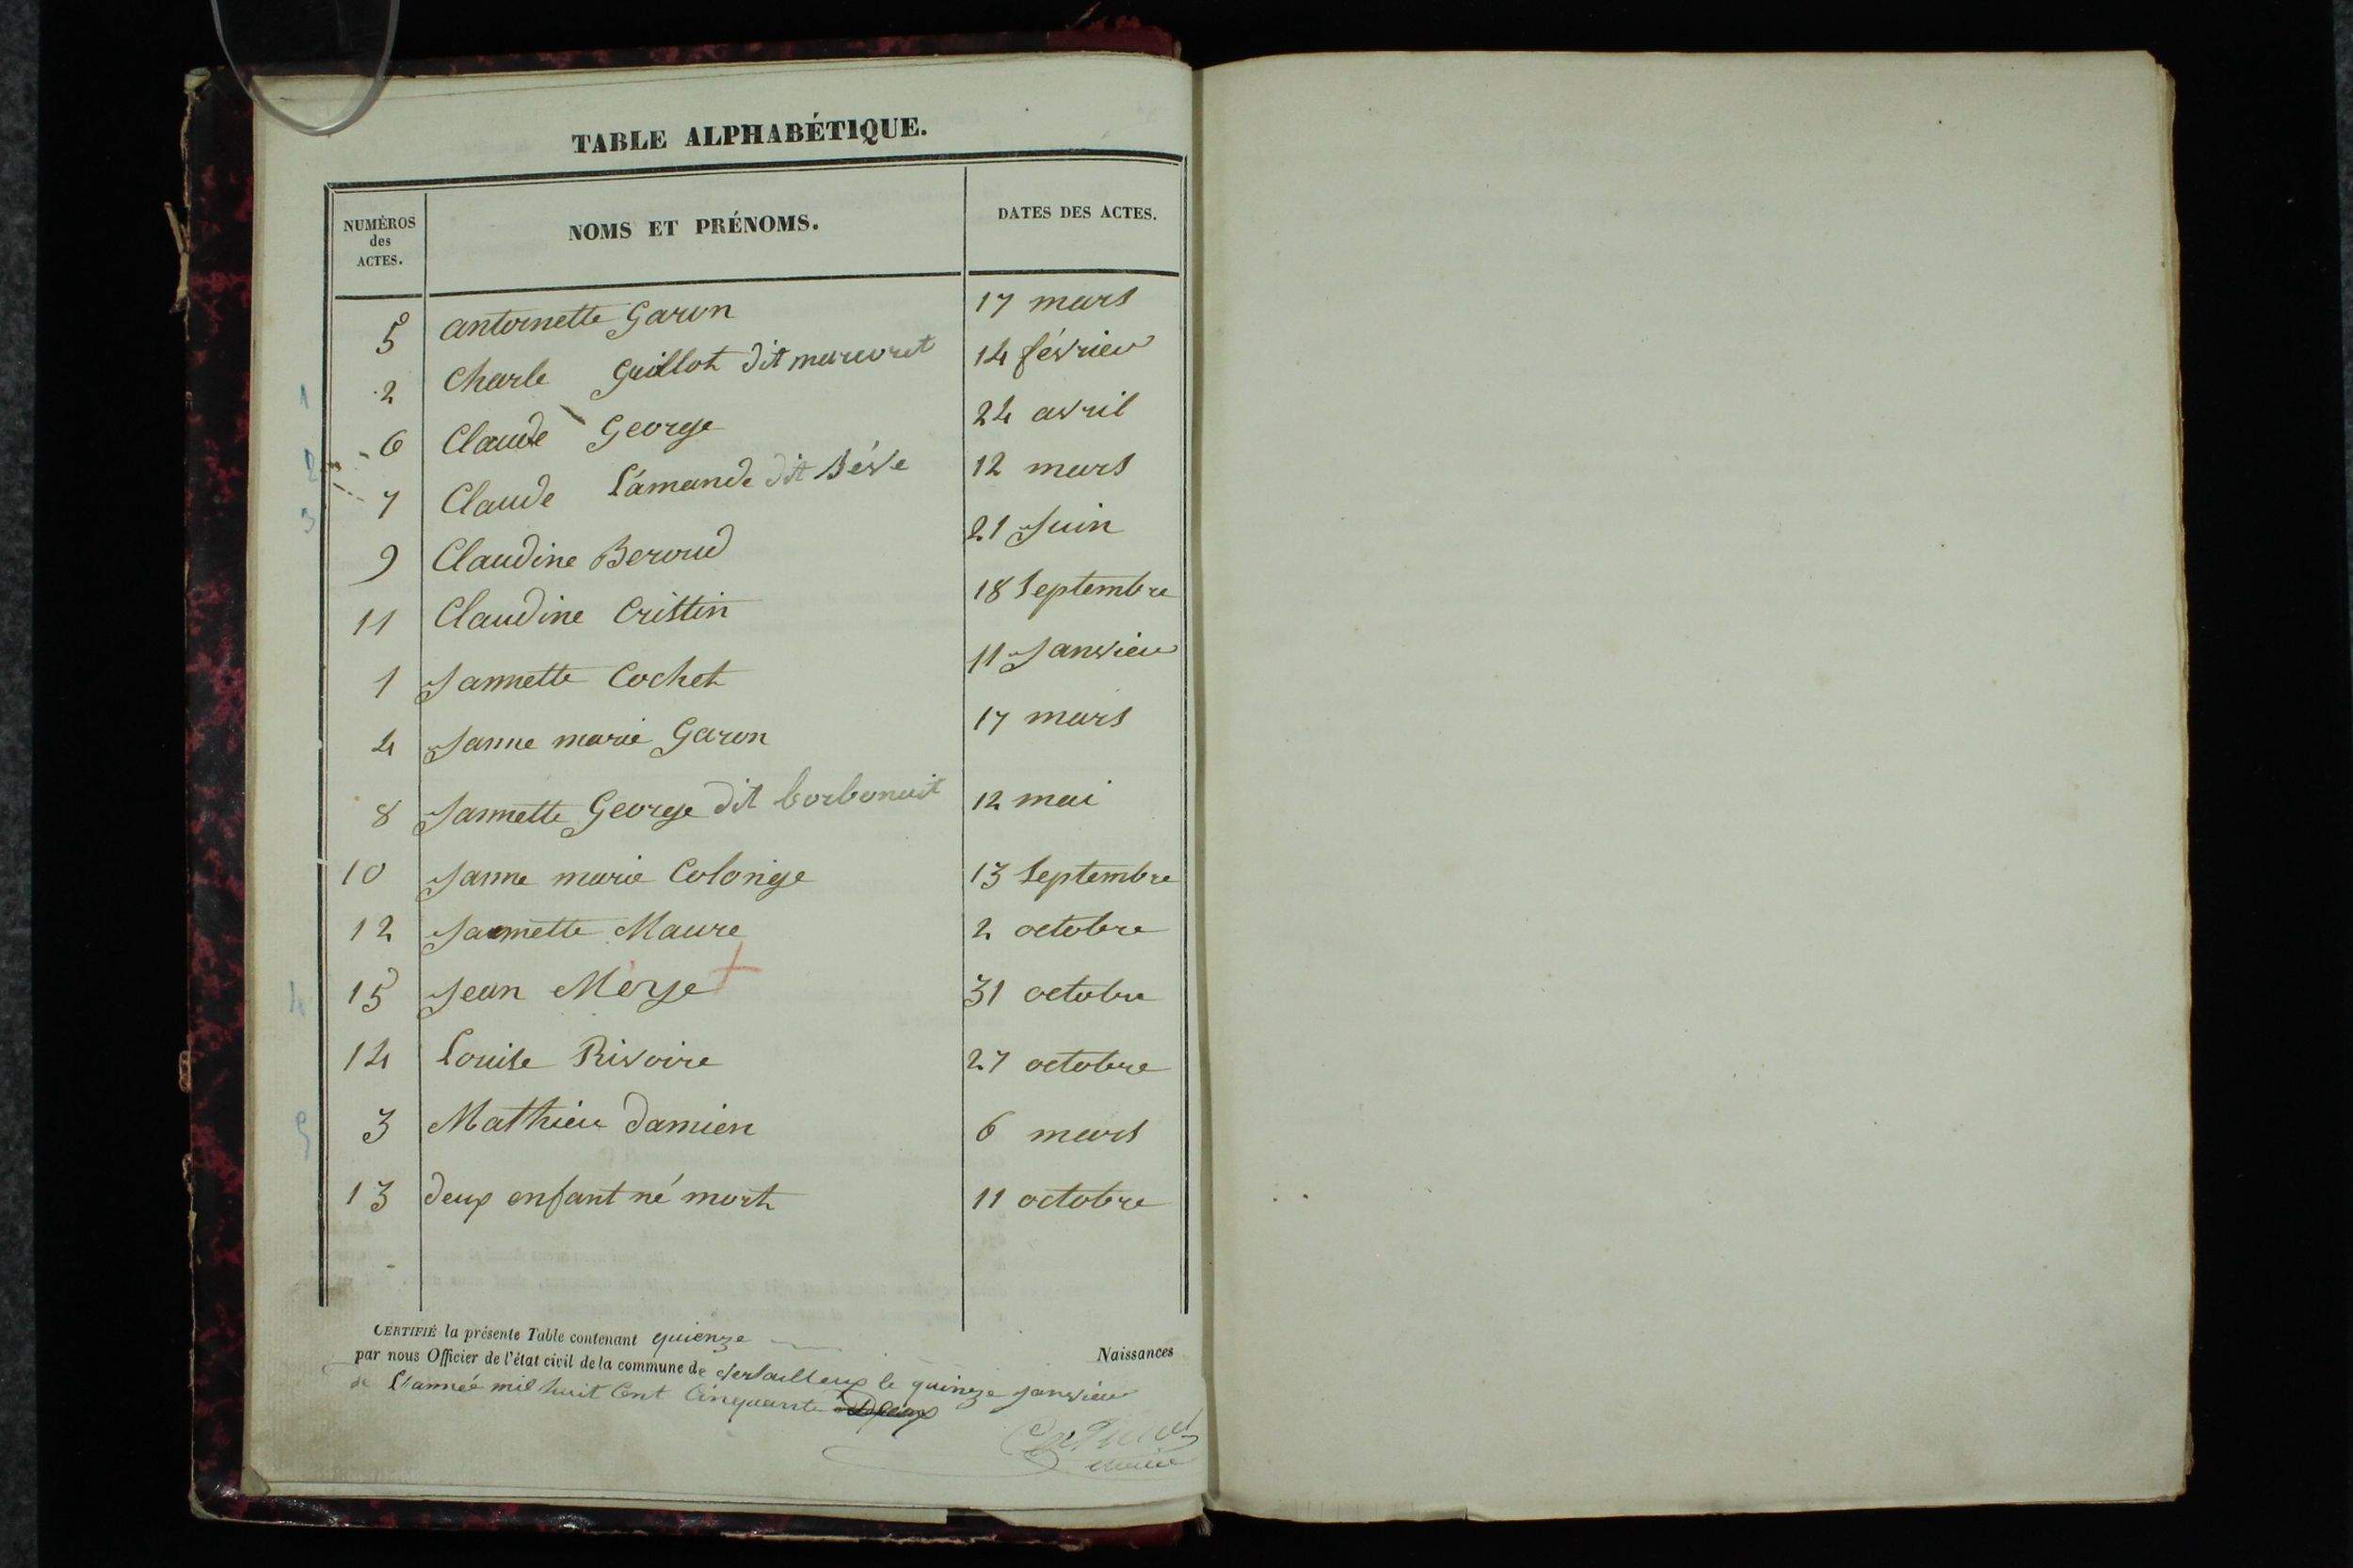 TABLE ALPHABÉTIQUE.
NUMÉROS des ACTES. NOMS ET PRÉNOMS. DATES DES ACTES.
5 antoinette Garon 17 mars
1 2 Charle Guillot dit 14 février
2 6 Claude George 24 avril
3 7 Claude Lámande dit Béve 12 mars
9 Claudine Beroud 21 Juin
11 Claudine Cristin 18 Septembre
1 Jannette Cochet 11 Janvier
4 Janne marie Garon 17 mars
8 Jannette George dit borbonait 12 mai
10 Janne marie Colonge 13 Septembre
12 Jannette Maure 2 octobre
4 15 Jean Monge 31 octobre
14 Louise Rivoire 27 octobre
5 3 Mathieu Damien 6 mars
13 deux enfant né mort 11 octobre
CERTIFIÉ la présente Table contenant quienze Naissances
par nous Officier de l'état civil de la commune de Versailleux le quinze Janvier
de l'année mil huit Cent Cinquante
maire